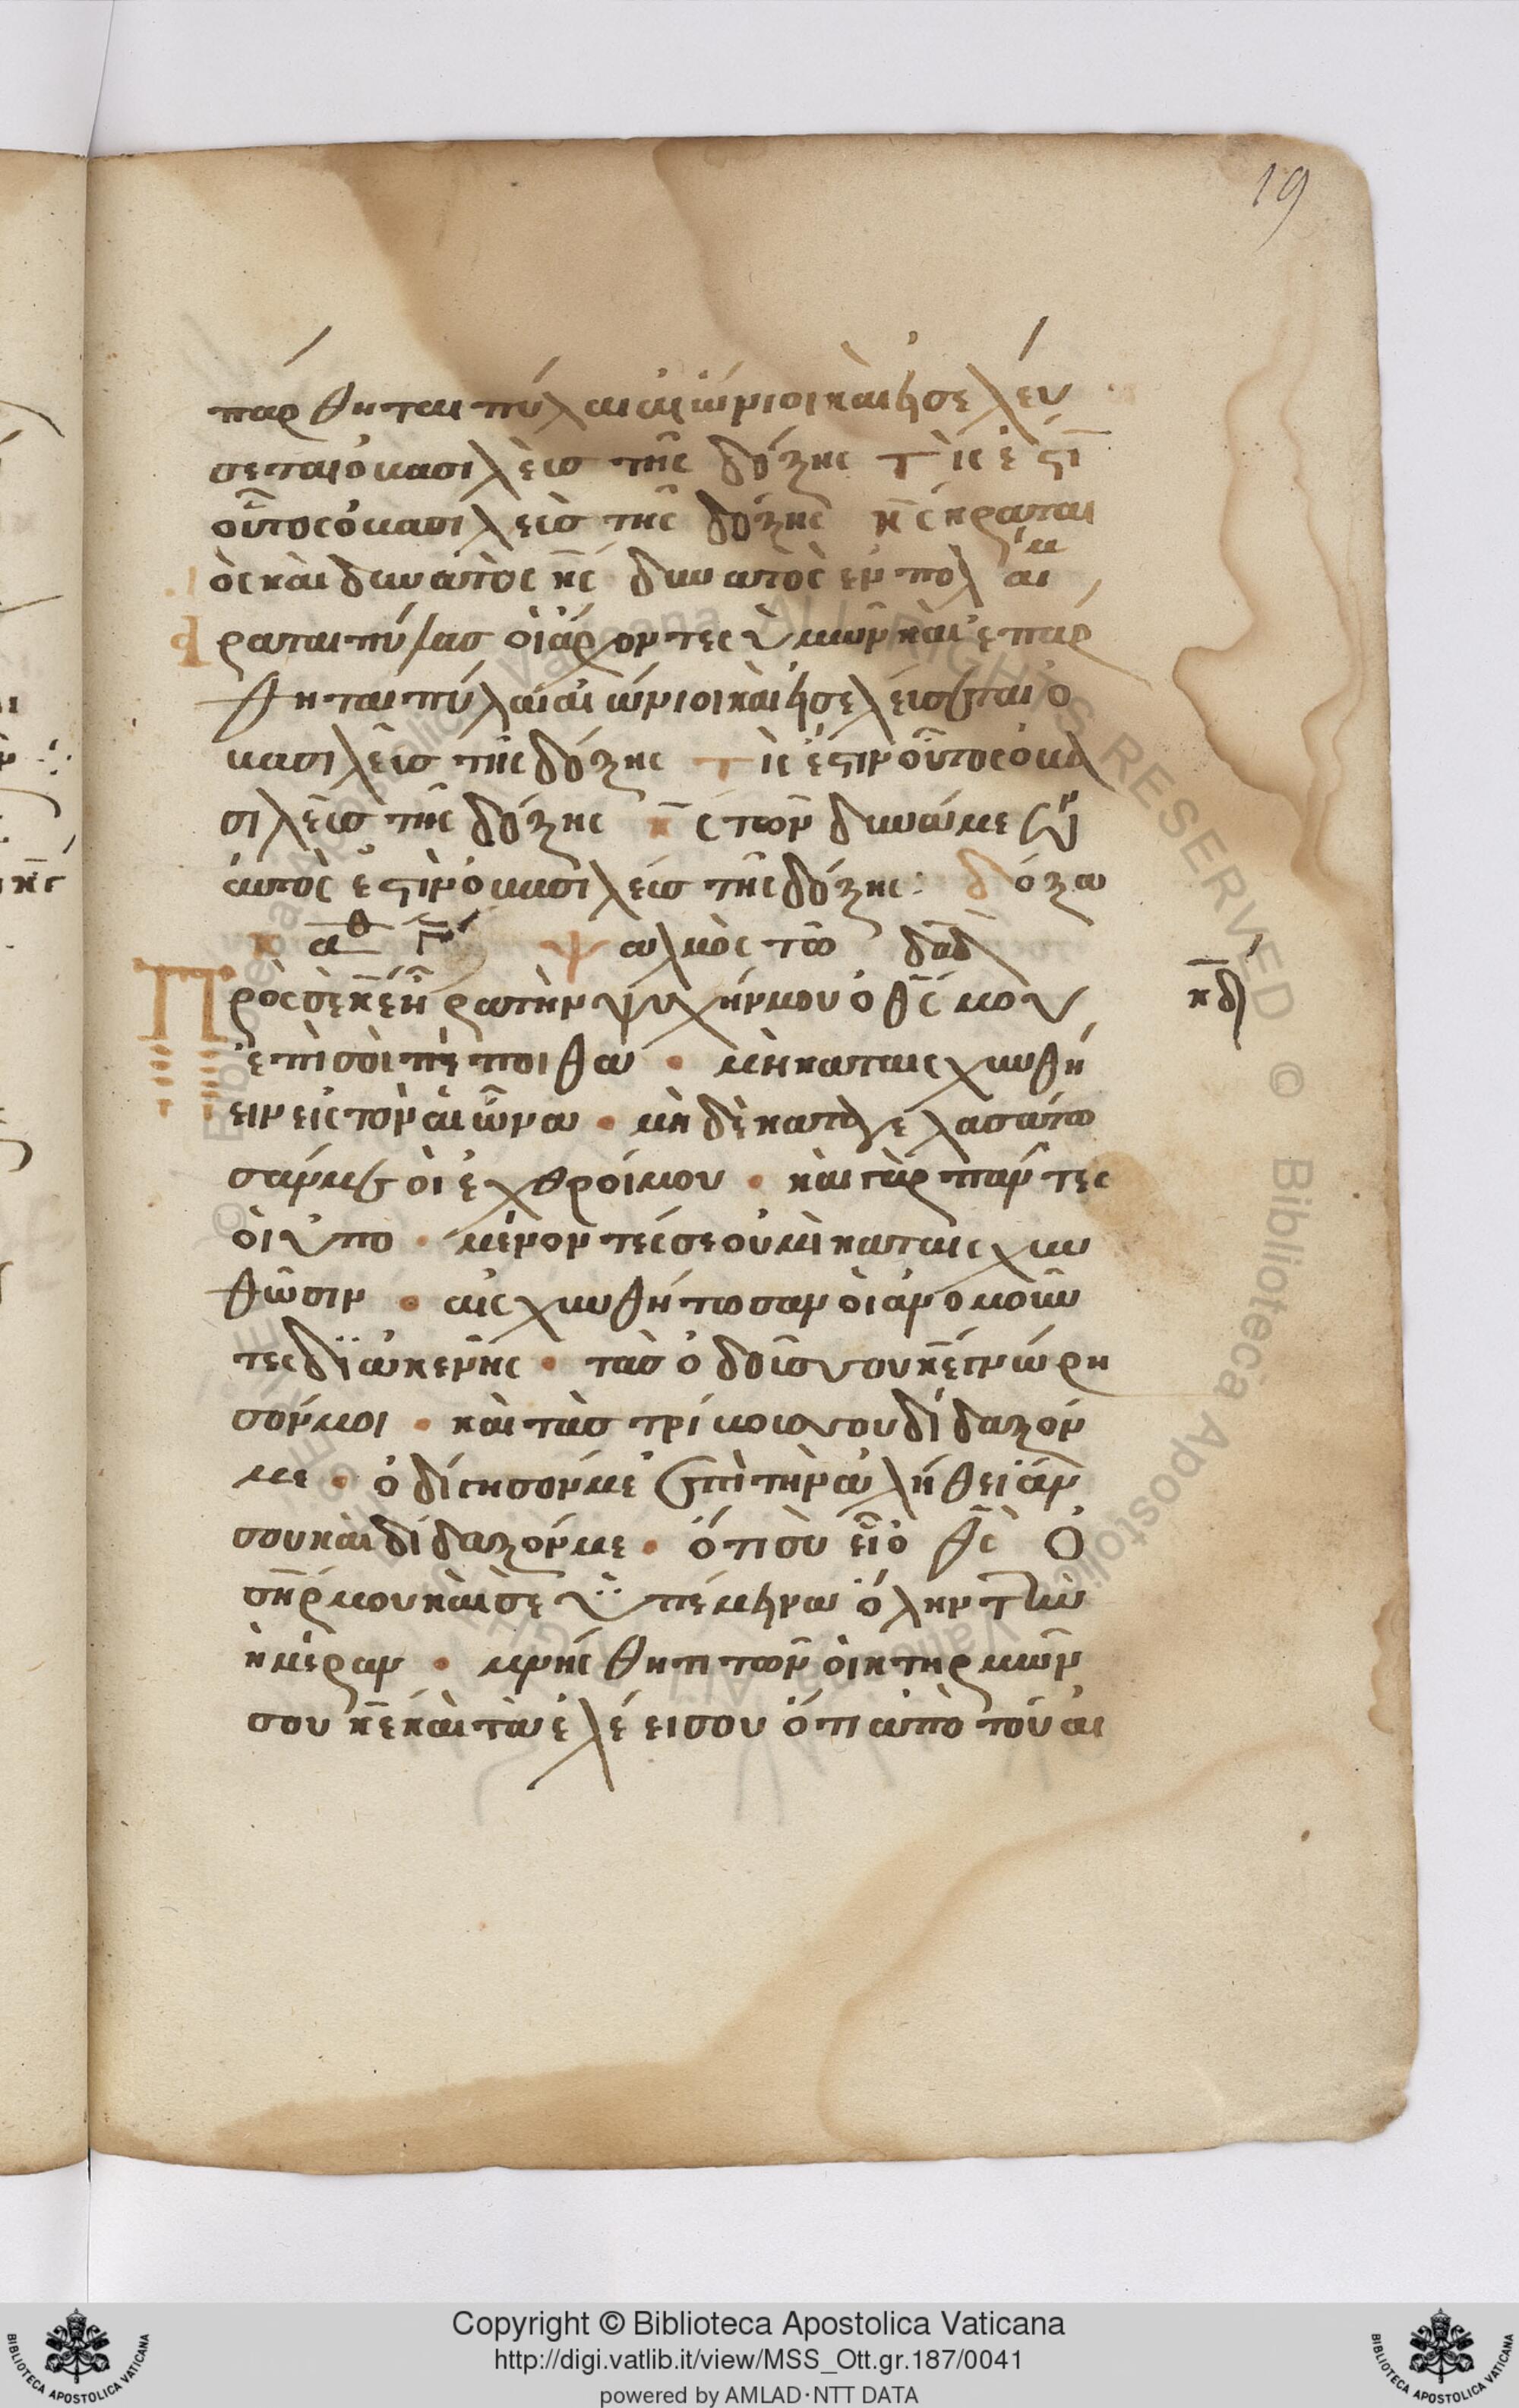 19
παρθηται πύλαι αἰώνιοι καὶ ἠσελέυ
σεται ὁ βασιλὲισ τῆς δόξης τὶς ἐστὶ
οὗτος ὁ βασιλεὶσ τῆς δόξης κ̅ς κραται
ὸς καὶ δυνατὸς κ̅ς δυνατὸς ἐν πολαίμ
ἄραται πύλασ οἱ ἄρχοντες ὑμῶν καὶ ἐπάρ
θηται πύλαι αἰώνιοι καὶ ἠσελέισεται ὁ
βασιλὲισ τῆς δόξης τὶς ἐστιν οὗτος ὁ βα
σιλὲισ τῆς δόξης κ̅ς τῶν δυνάμεων
ἀυτὸς ἐστὶν ὁ βασιλεὶσ τῆς δόξης: δόξα
κ αθ Γ ψαλμὸς τῶ δαδ
Πρὸς σὲ κ̅ε ἦρα τὴν ψυχήν μου ὁ θ̅ς μου
κδ
ἐπὶ σὸι πέποιθα · μὴ καταισχυνθή
ειν εἰς τὸν αἰῶνα · μὴ δὲ καταγελασάτω
σάν με οἱ ἐχθροί μου · καὶ γὰρ πάντες
ὁι ὑπο · μένοντές σε οὐ μὴ καταισχυν
θῶσιν · αἰσχυνθήτωσαν ὁι ἀνομοῦν
τες διὰ κενῆς · τὰσ ὁδοῖσ σου κ̅ε γνώρη
σόν μοι · καὶ τὰσ τρίβοισ σου δίδαξόν
με · ὁδίγησόν με ἐπὶ τὴν ἀλήθειάν
σου καὶ δίδαξόν με · ὅτι σὺ εἶ ὁ θ̅ς Ὁ
σ̅η̅ρ μου καὶ σὲ ὑπέμηνα ὅλην τὴν
ἡμέραν · μνήσθητι τῶν ὀικτηρμῶν
σου κ̅ε καὶ τὰ ἐλέει σου ὅτι ἀπὸ τοῦ αἰ
Copyright © Biblioteca Apostolica Vaticana
http://digi.vatlib.it/view/MSS_Ott.gr.187/0041
powered by AMLAD·NTT DATA